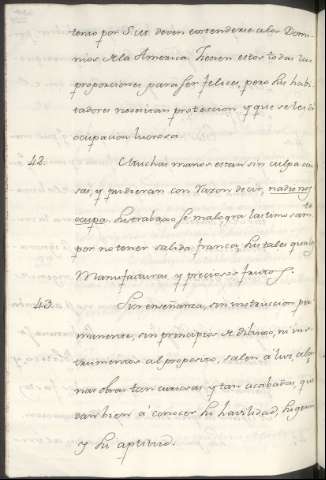 terio por S.M. deven entenderse a los Domi-
nios de la America. Tienen estos todas las
proporciones para ser felices, pero sus habi-
tadores necesitan proteccion y que se les dé
ocupacion lucrosa.
42. Muchas manos estan sin culpa ocio-
sas, y pudieran con razon decir, nadie nos
ocupa. Su trabajo se malogra lastimosamte
por no tener salida franca, sus tales quales
Manufacturas y preciosos frutos.
43. Sin enseñanza, sin instruccion per-
manente, sin principios de dibuxo, ni ins-
trumentos al proposito, salen á luz, algu-
nas obras tan curiosas y tan acabadas, que
dan bien á conocer su havilidad, su genio
y su aptitud.